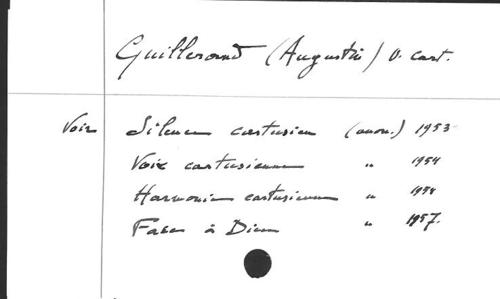 Guillerand (Augustin) o. cart.
Voir Silence cartusien (anon.) 1953
Voix cartusienne " 1954
Harmonie cartusienne "
Face à Dieu " 1957.